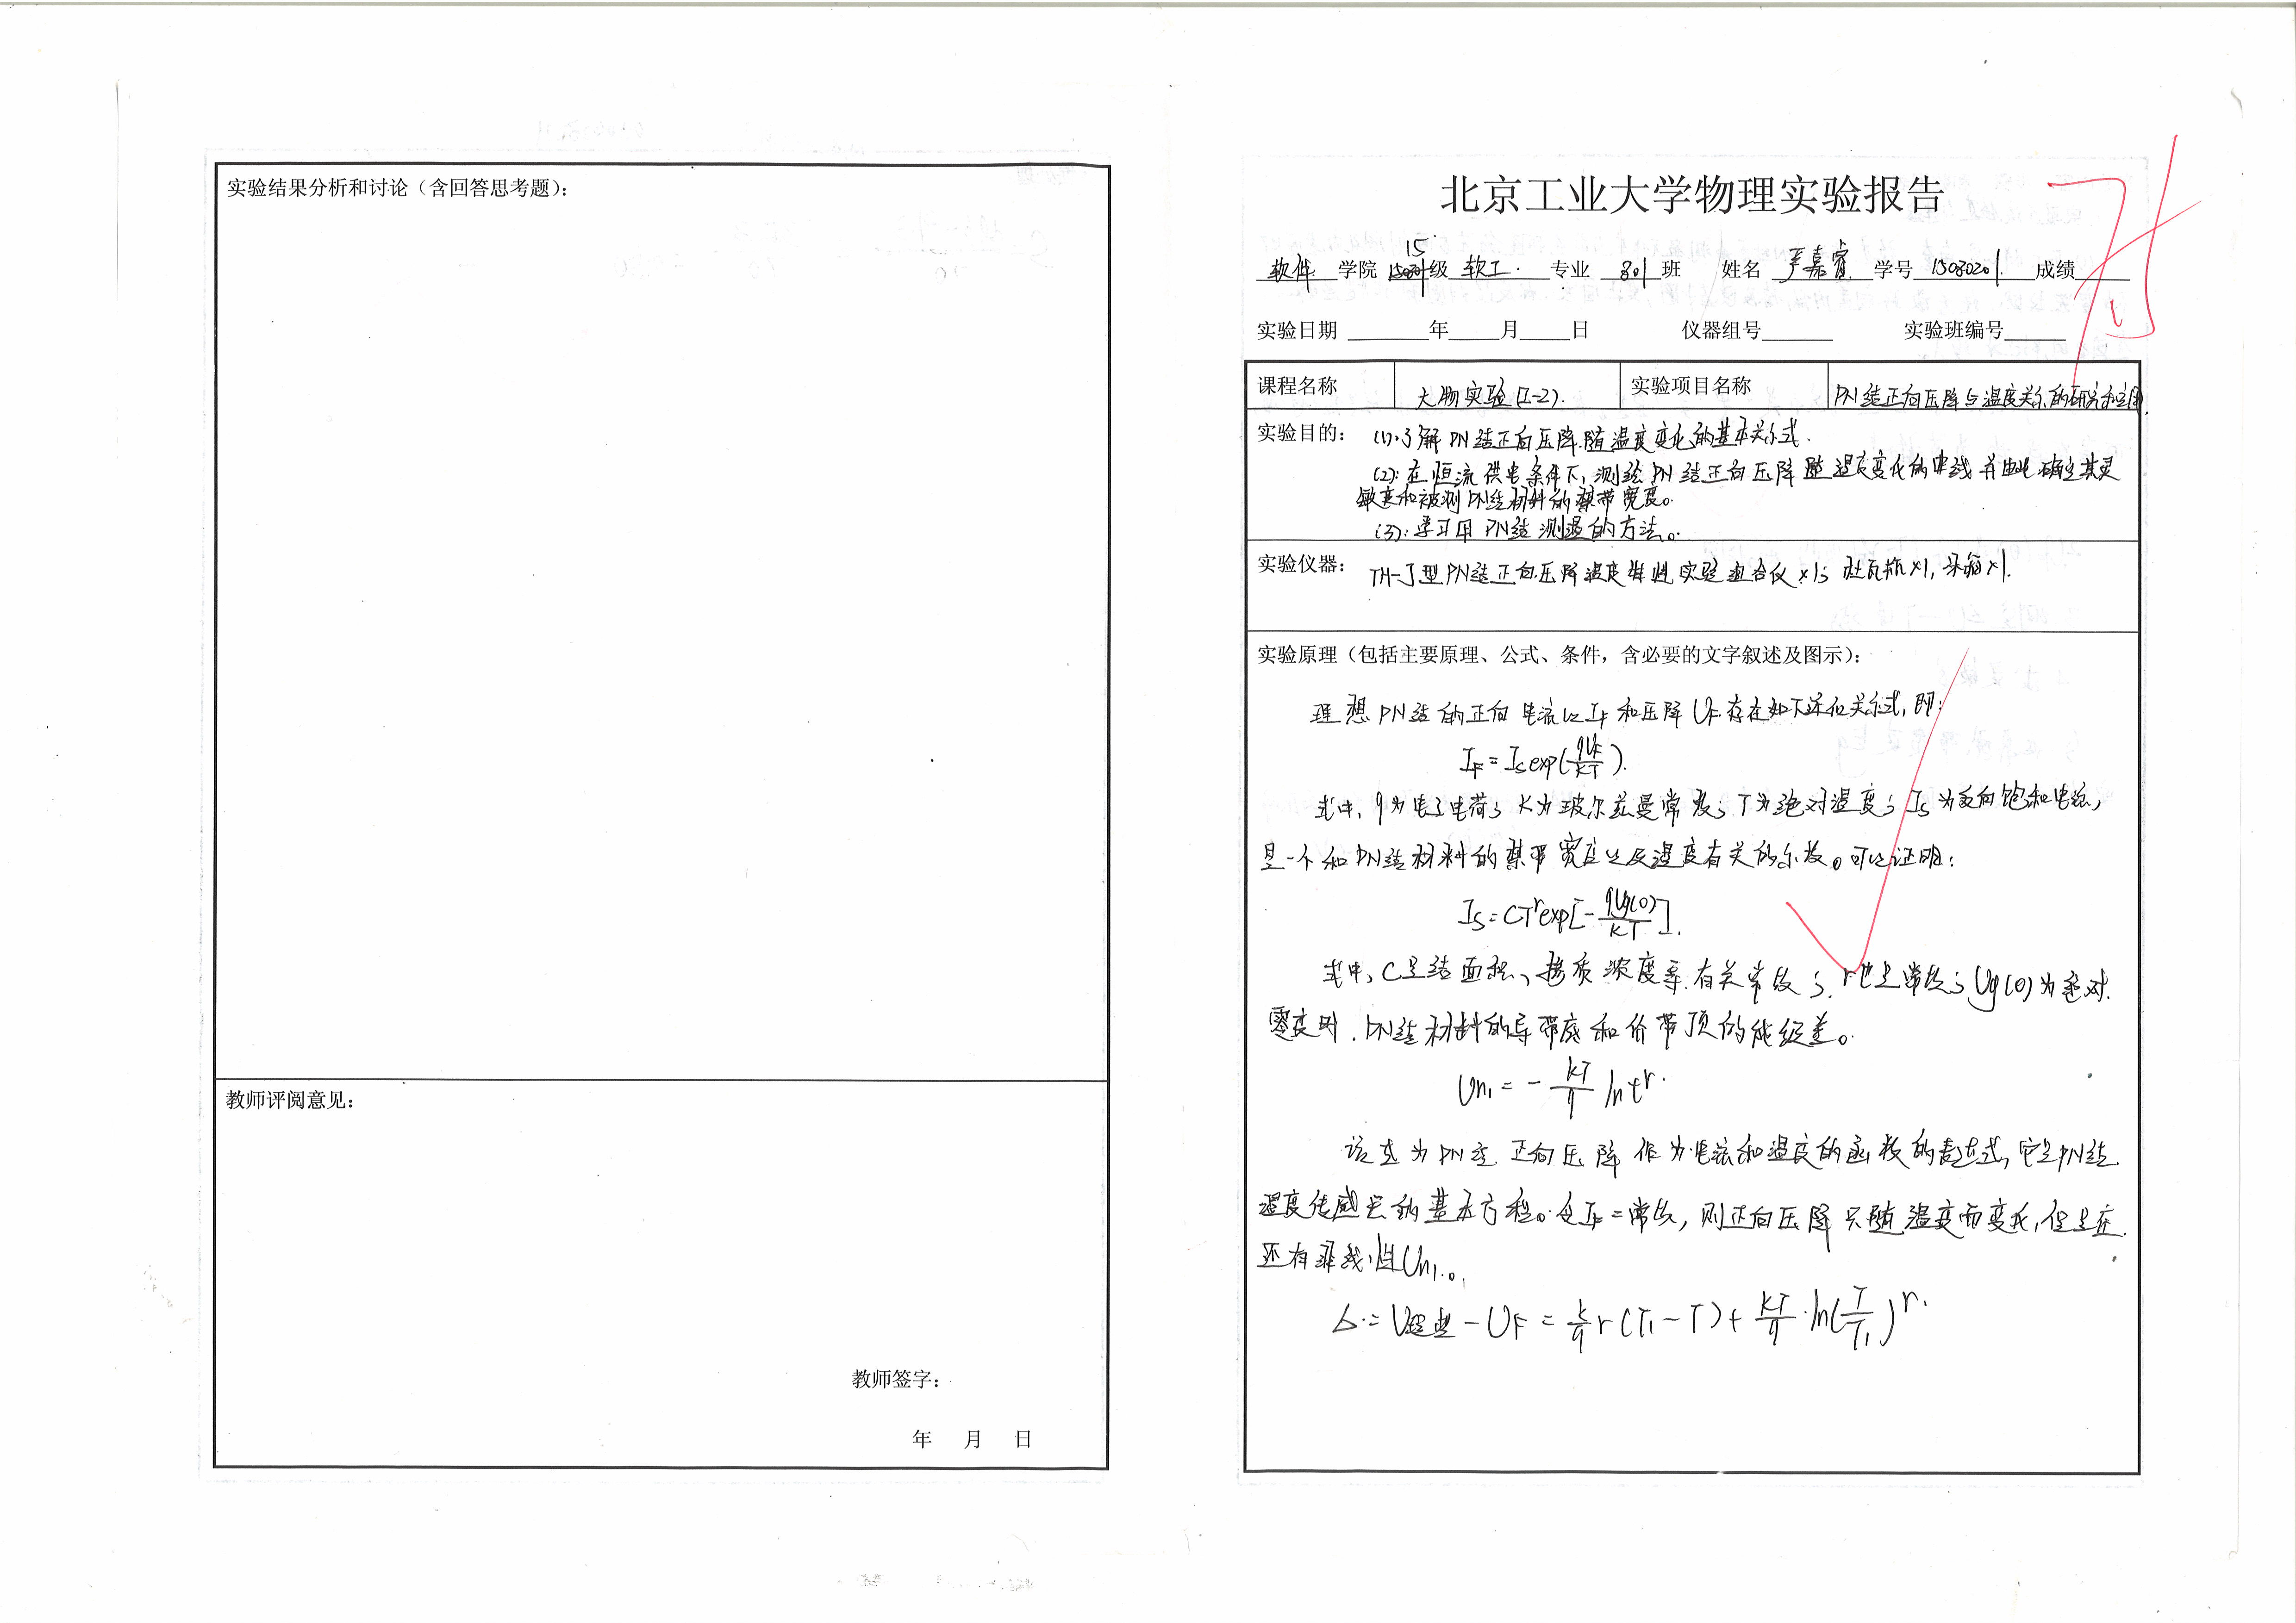 实验结果分析和讨论（含回答思考题）：
教师评阅意见：
教师签字：
年 月 日
北京工业大学物理实验报告
15
软件 学院 级 软工. 专业 801 班 姓名 严嘉睿 学号 15080201. 成绩
实验日期 年 月 日 仪器组号 实验班编号
课程名称 大物实验(I-2). 实验项目名称 PN结正向压降与温度关系的研究和应用.
实验目的： (1).了解PN结正向压降随温度变化的基本关系式.
(2):在恒流供电条件下,测绘PN结正向压降随温度变化的曲线并由此确定其灵
敏度和被测PN结材料的禁带宽度。
(3):学习用PN结测温的方法。
实验仪器： TH-J型PN结正向压降温度特性实验组合仪×1; 杜瓦瓶×1,
实验原理（包括主要原理、公式、条件，含必要的文字叙述及图示）：
理想PN结的正向电流IF和压降UF存在如下近似关系式,即:
IF=Is exp(qUF/kT).
式中,q为电子电荷;K为玻尔兹曼常数;T为绝对温度;Is为反向饱和电流,
是一个和PN结材料的禁带宽度以及温度有关的系数。可以证明:
Is=CT^r exp[-qUg(0)/kT].
式中,C是结面积、掺质浓度等有关常数;r也是常数;Ug(0)为绝对
零度时.PN结材料的导带底和价带顶的能级差。
Un1=-kT/q ln t^r.
该式为PN结正向压降作为电流和温度的函数的表达式,它是PN结
温度传感器的基本方程。令IF=常数,则正向压降只随温度而变化,但是在
还有非线性Un1。
Δ=U理想-UF=k/q r(T1-T)+kT/q·ln(T/T1)^r.